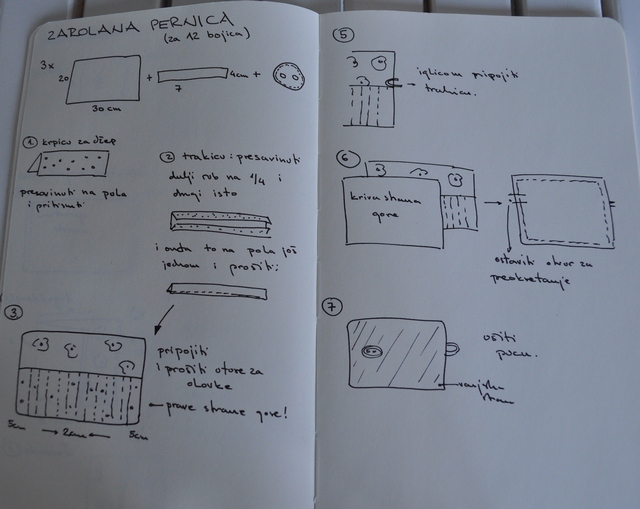 ZAROLANA PERNICA
(za 12 bojica)
3x
20
30cm
+
7
4cm +
1 krpicu za džep
presavinuti na pola
i pritisnuti
2 trakicu: presavinuti
dulji rub na 1/4 i
drugi isto
i onda to na pola još
jednom i prošiti:
3
pripojiti
i prošiti otvore za
olovke
prave strane gore!
5cm
2cm
5cm
5
iglicom pripojiti
trakicu.
6
kriva strana
gore
ostaviti otvor za
preokretanje
7
ušiti
puce.
vanjska
strana